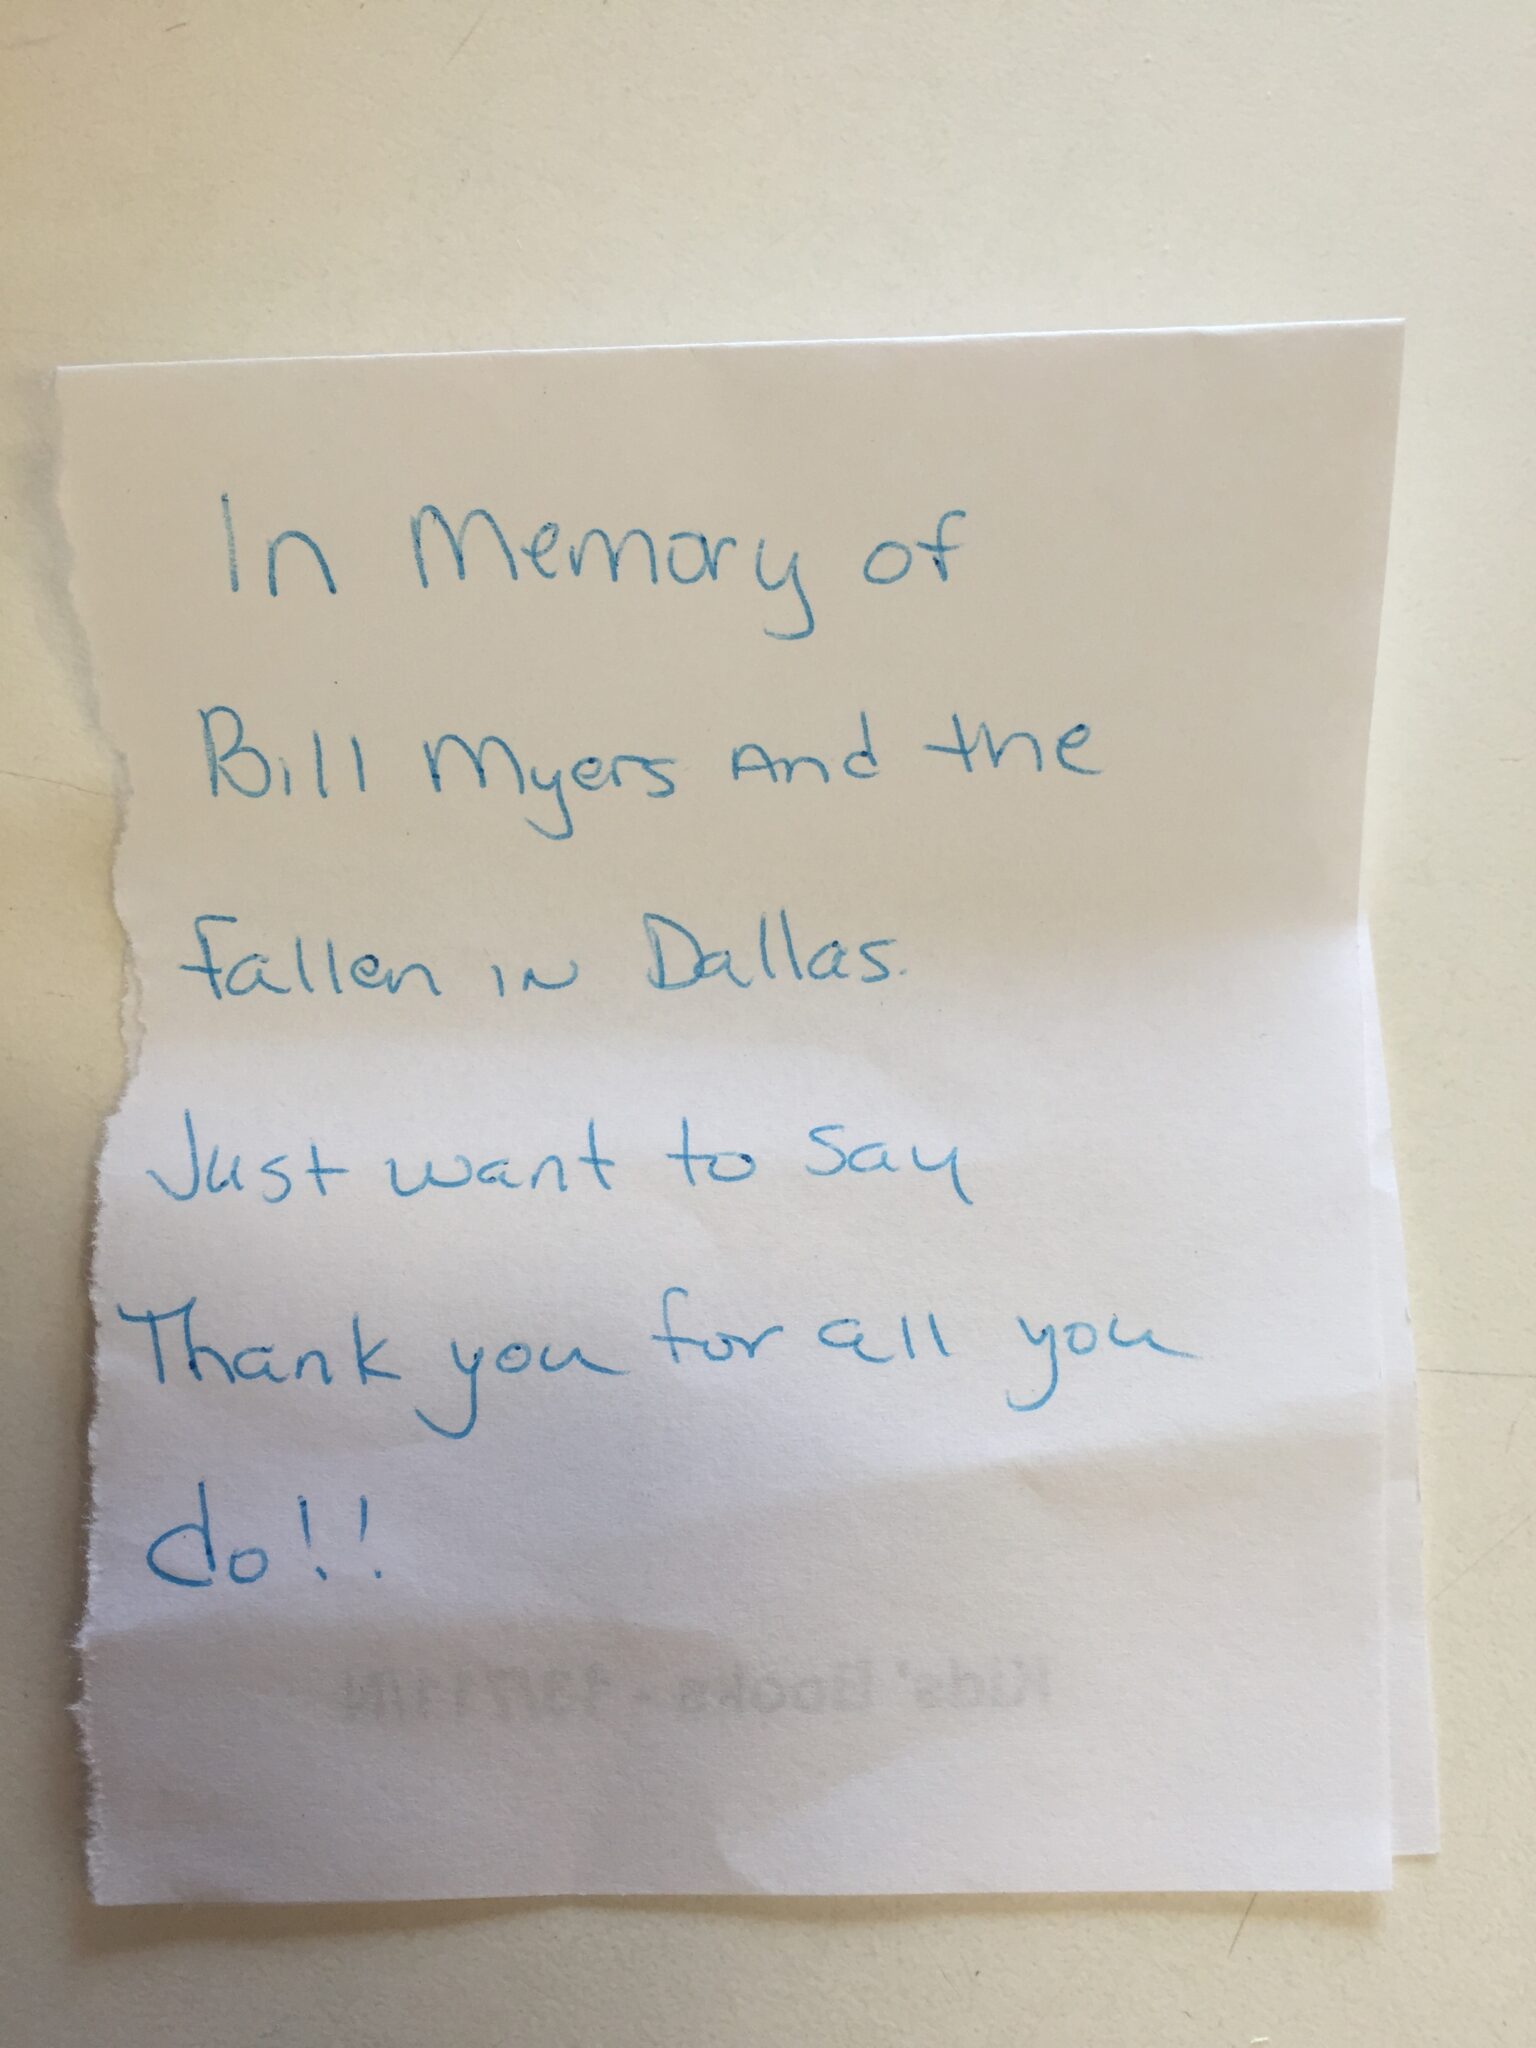 In Memory of
Bill Myers And the
fallen in Dallas.
Just want to say
Thank you for all you
do!!
Kids' Books -